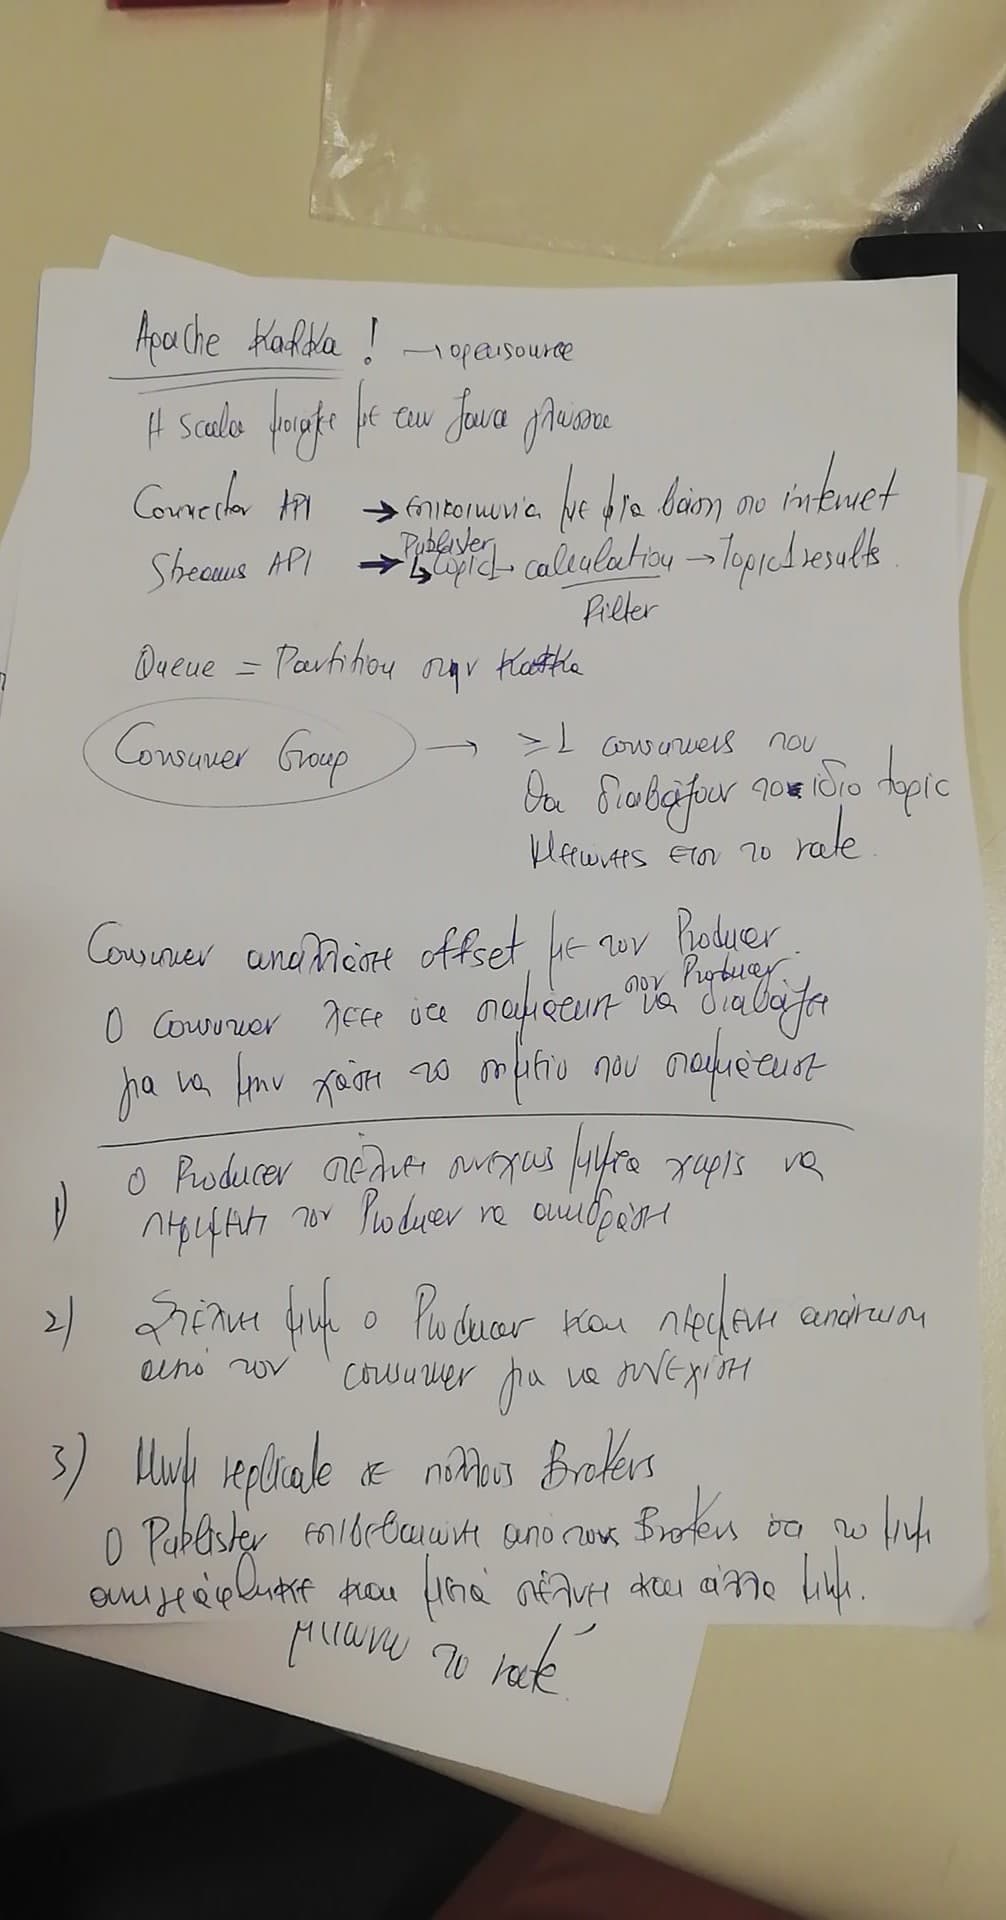 Apache Kafka! → opensource
Η Scala μοιάζει με την Java γλώσσα
Connector API → επικοινωνία με μια βάση στο internet
Streams API → Publisher
↳ topic1 → calculation → Topic1 results.
Filter
Queue = Partition στην Kafka
Consumer Group → ≥1 consumers που
θα διαβάζουν το ίδιο topic
Μειώνεις έτσι το rate.
Consumer ανταλλάσει offset με τον Producer.
στον Producer
Ο consumer λέει ότι σταμάτησε να διαβάζει
για να μην χάσει το σημείο που σταμάτησε
1) Ο Producer στέλνει συνεχώς μηνύματα χωρίς να
περιμένει τον Producer να αντιδράσει
2) Στέλνει μην. ο Producer και περιμένει απάντηση
από τον consumer για να συνεχίσει
3) Μην. replicate σε πολλούς Brokers
Ο Publister επιβεβαιώνει από τους Brokers ότι το μην.
αντιγράφηκε και μετά στέλνει και άλλα μην.
το rate.